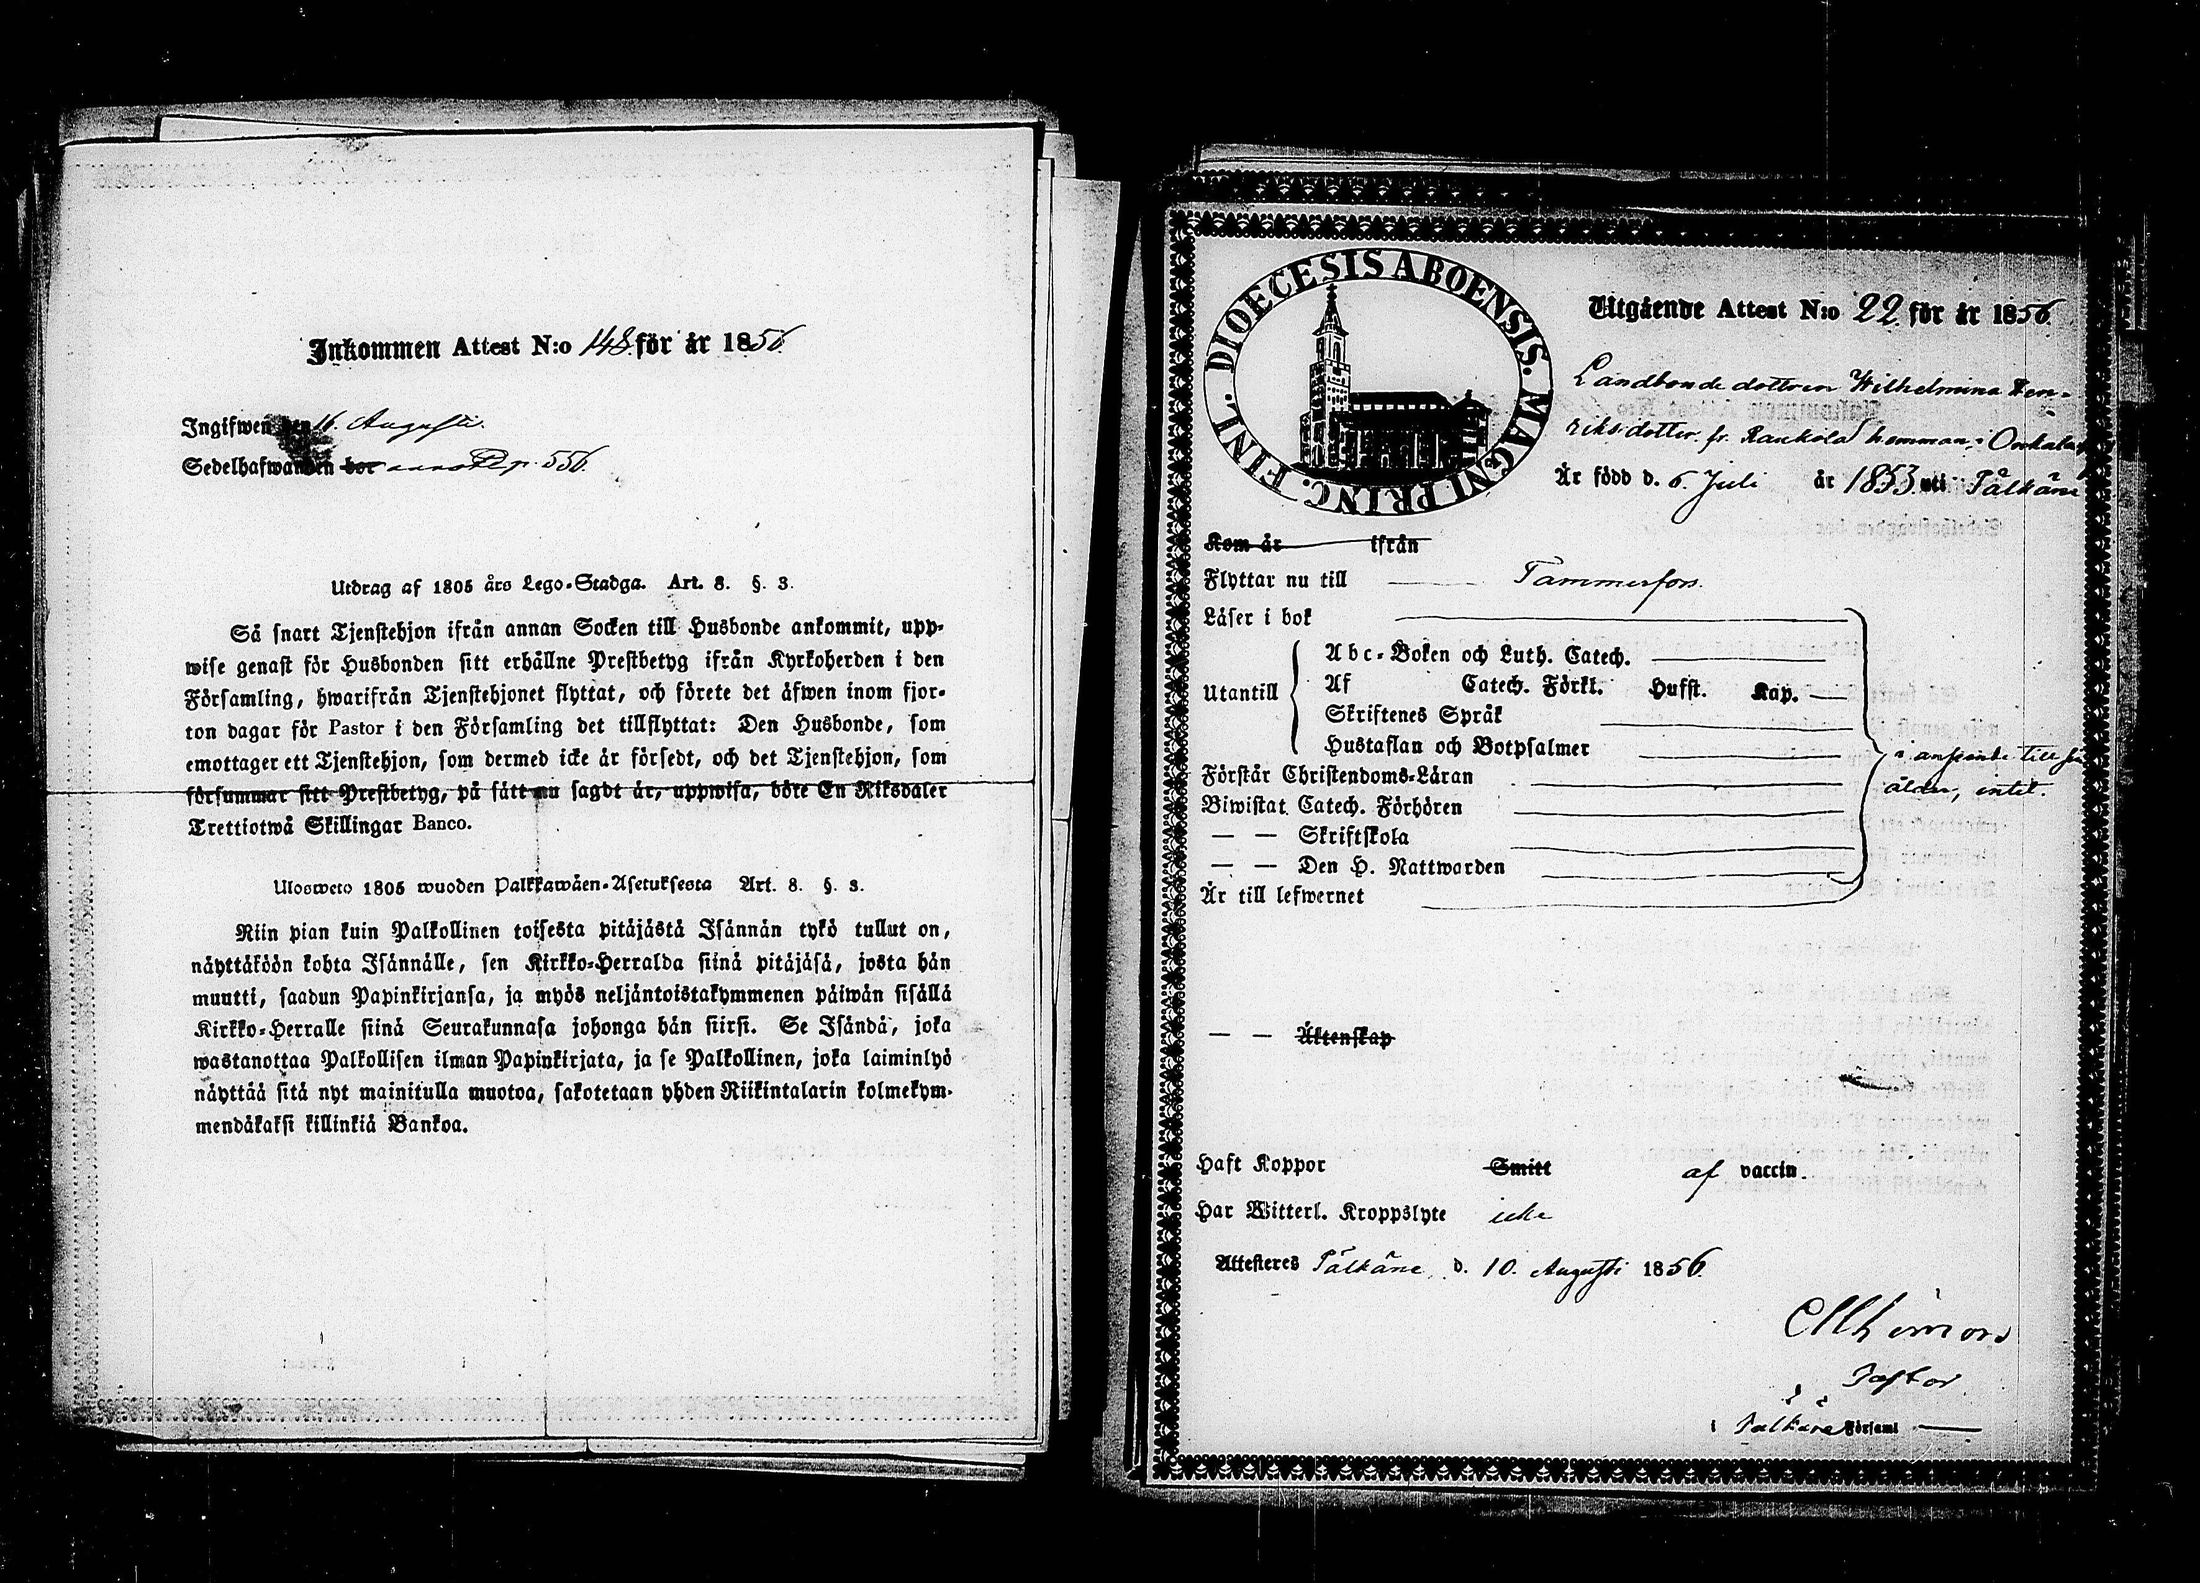 Inkommen Attest N:o 148 för år 1856.
Ingifwen den 16. Augusti.
Sedelhafwanden bor p. 556.
Utdrag af 1805 års Lego-Stadga. Art. 8. §. 3.
Så snart Tjenstehjon ifrån annan Socken till Husbonde ankommit, upp-
wise genast för Husbonden sitt erhållne Prestbetyg ifrån Kyrkoherden i den
Församling, hwarifrån Tjenstehjonet flyttat, och förete det äfwen inom fjor-
ton dagar för Pastor i den Församling det tillflyttat: Den Husbonde, som
emottager ett Tjenstehjon, som dermed icke är försedt, och det Tjenstehjon, som
försummar sitt Prestbetyg, på sätt nu sagdt är, uppwisa, böte En Riksdaler
Trettiotwå Skillingar Banco.
Ulosweto 1805 wuoden Palkkawäen-Asetuksesta Art. 8. §. 3.
Niin pian kuin Palkollinen toisesta pitäjästä Isännän tykö tullut on,
näyttäköön kohta Isännälle, sen Kirkko-Herralda siinä pitäjäsä, josta hän
muutti, saadun Papinkirjansa, ja myös neljäntoistakymmenen päiwän sisällä
Kirkko-Herralle siinä Seurakunnasa johonga hän siirsi. Se Isändä, joka
wastanottaa Palkollisen ilman Papinkirjata, ja se Palkollinen, joka laiminlyö
näyttää sitä nyt mainitulla muotoa, sakotetaan yhden Riikintalarin kolmekym-
mendäkaksi killinkiä Bankoa.
DIOECESIS ABOENSIS. MAGNI PRINC. FINL.
Utgående Attest N:o 22 för år 1856
Landbonde dottren Wilhelmina Hen-
riks dotter fr. Raukola hemman i Onkala
Är född d. 6. Juli år 1853 uti Pälkäne
Kom år ifrån
Flyttar nu till Tammerfors.
Läser i bok
Utantill
Abc-Boken och Luth. Catech.
Af Catech. Förkl. Hufst. Kap.
Skriftenes Språk
Hustaflan och Botpsalmer
Förstår Christendoms-Läran
Biwistat Catech. Förhören
— — Skriftskola
— — Den H. Nattwarden
Är till lefwernet
i anseende till sin
ålder, intet.
— — Äktenskap
Haft Koppor Smitt af vaccin.
Har Witterl. Kroppslyte icke
Attesteras Pälkäne d. 10. Augusti 1856.
Pastor
i Pälkäne Församl